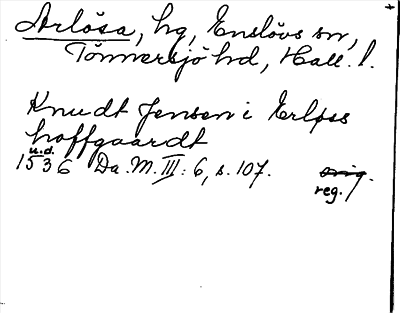 Arlösa, hg, Enslövs sn,
Tönnersjö hd, Hall. l.
Knudt Jensen i Erløss
hoffgaardt
u.d.
1536 Da. M. III: 6, s. 107. orig.
reg.